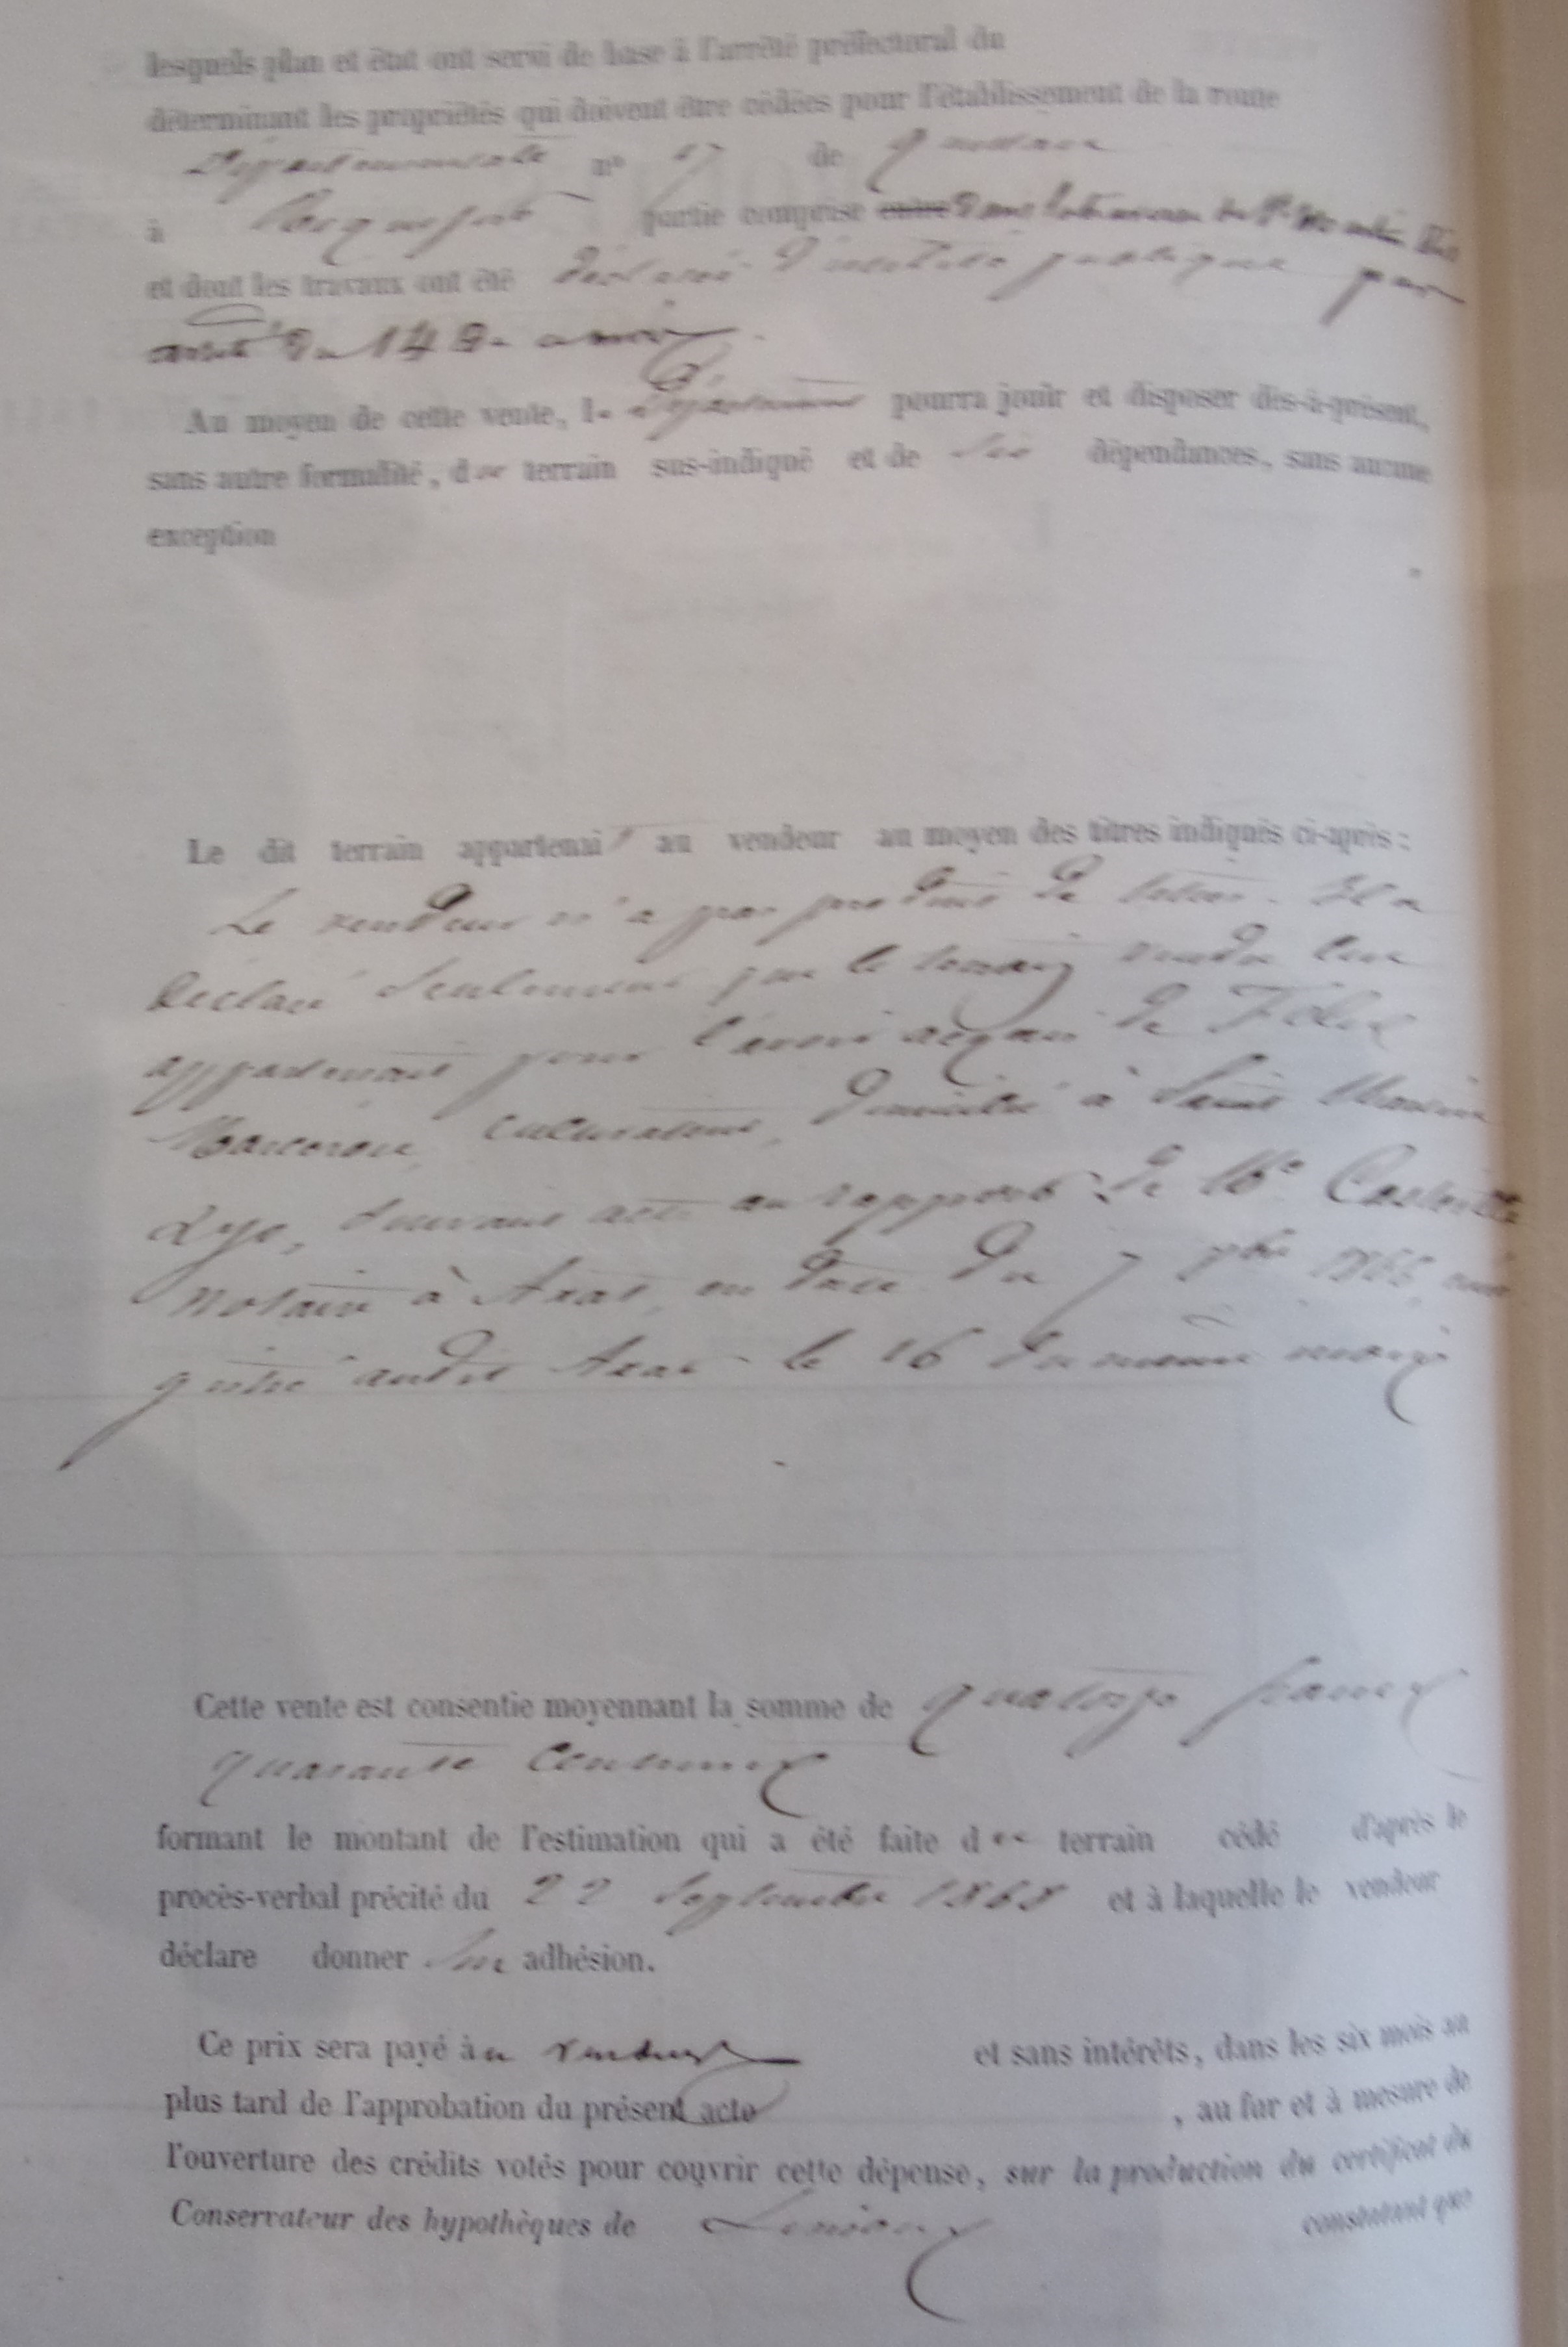 lesquels plan et état ont servi de base à l'arrêté préfectoral du
déterminant les propriétés qui doivent être cédées pour l'établissement de la route
Départementale n° 17 de Quillan
à partie comprise entre dans la traverse de St Martin Lys
et dont les travaux ont été déclarés d'utilité publique par
arrêté du 14 de ce mois.
Au moyen de cette vente, le Département pourra jouir et disposer dès-à-présent,
sans autre formalité, du terrain sus-indiqué et de ses dépendances, sans aucune
exception
Le dit terrain appartenait au vendeur au moyen des titres indiqués ci-après :
Le vendeur n'a pas produit de titres. Il a
déclaré seulement que le terrain vendu leur
appartenait pour l'avoir acquis de Félix
cultivateur, domicilié à Saint Martin
Lys, suivant acte au rapport de Me
notaire à Axat, en date du 7 7bre enre
gistré audit Axat le 16 du même mois
Cette vente est consentie moyennant la somme de quatorze francs
quarante centimes
formant le montant de l'estimation qui a été faite du terrain cédé d'après le
procès-verbal précité du 22 Septembre 1868 et à laquelle le vendeur
déclare donner son adhésion.
Ce prix sera payé au vendeur et sans intérêts, dans les six mois au
plus tard de l'approbation du présent acte , au fur et à mesure de
l'ouverture des crédits votés pour couvrir cette dépense, sur la production du certificat du
Conservateur des hypothèques de Limoux constatant que